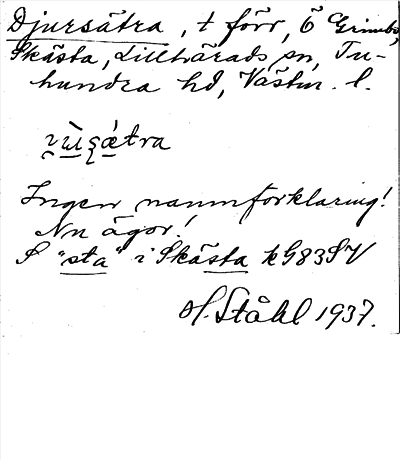 Djursätra, t förr, Ö Grimbo,
Skästa, Lillhärads sn, Tu-
hundra hd, Västm. l.
Ingen namnförklaring!
Nu ägor!
S "sta" i Skästa kG83SV
H. Ståhl 1937.